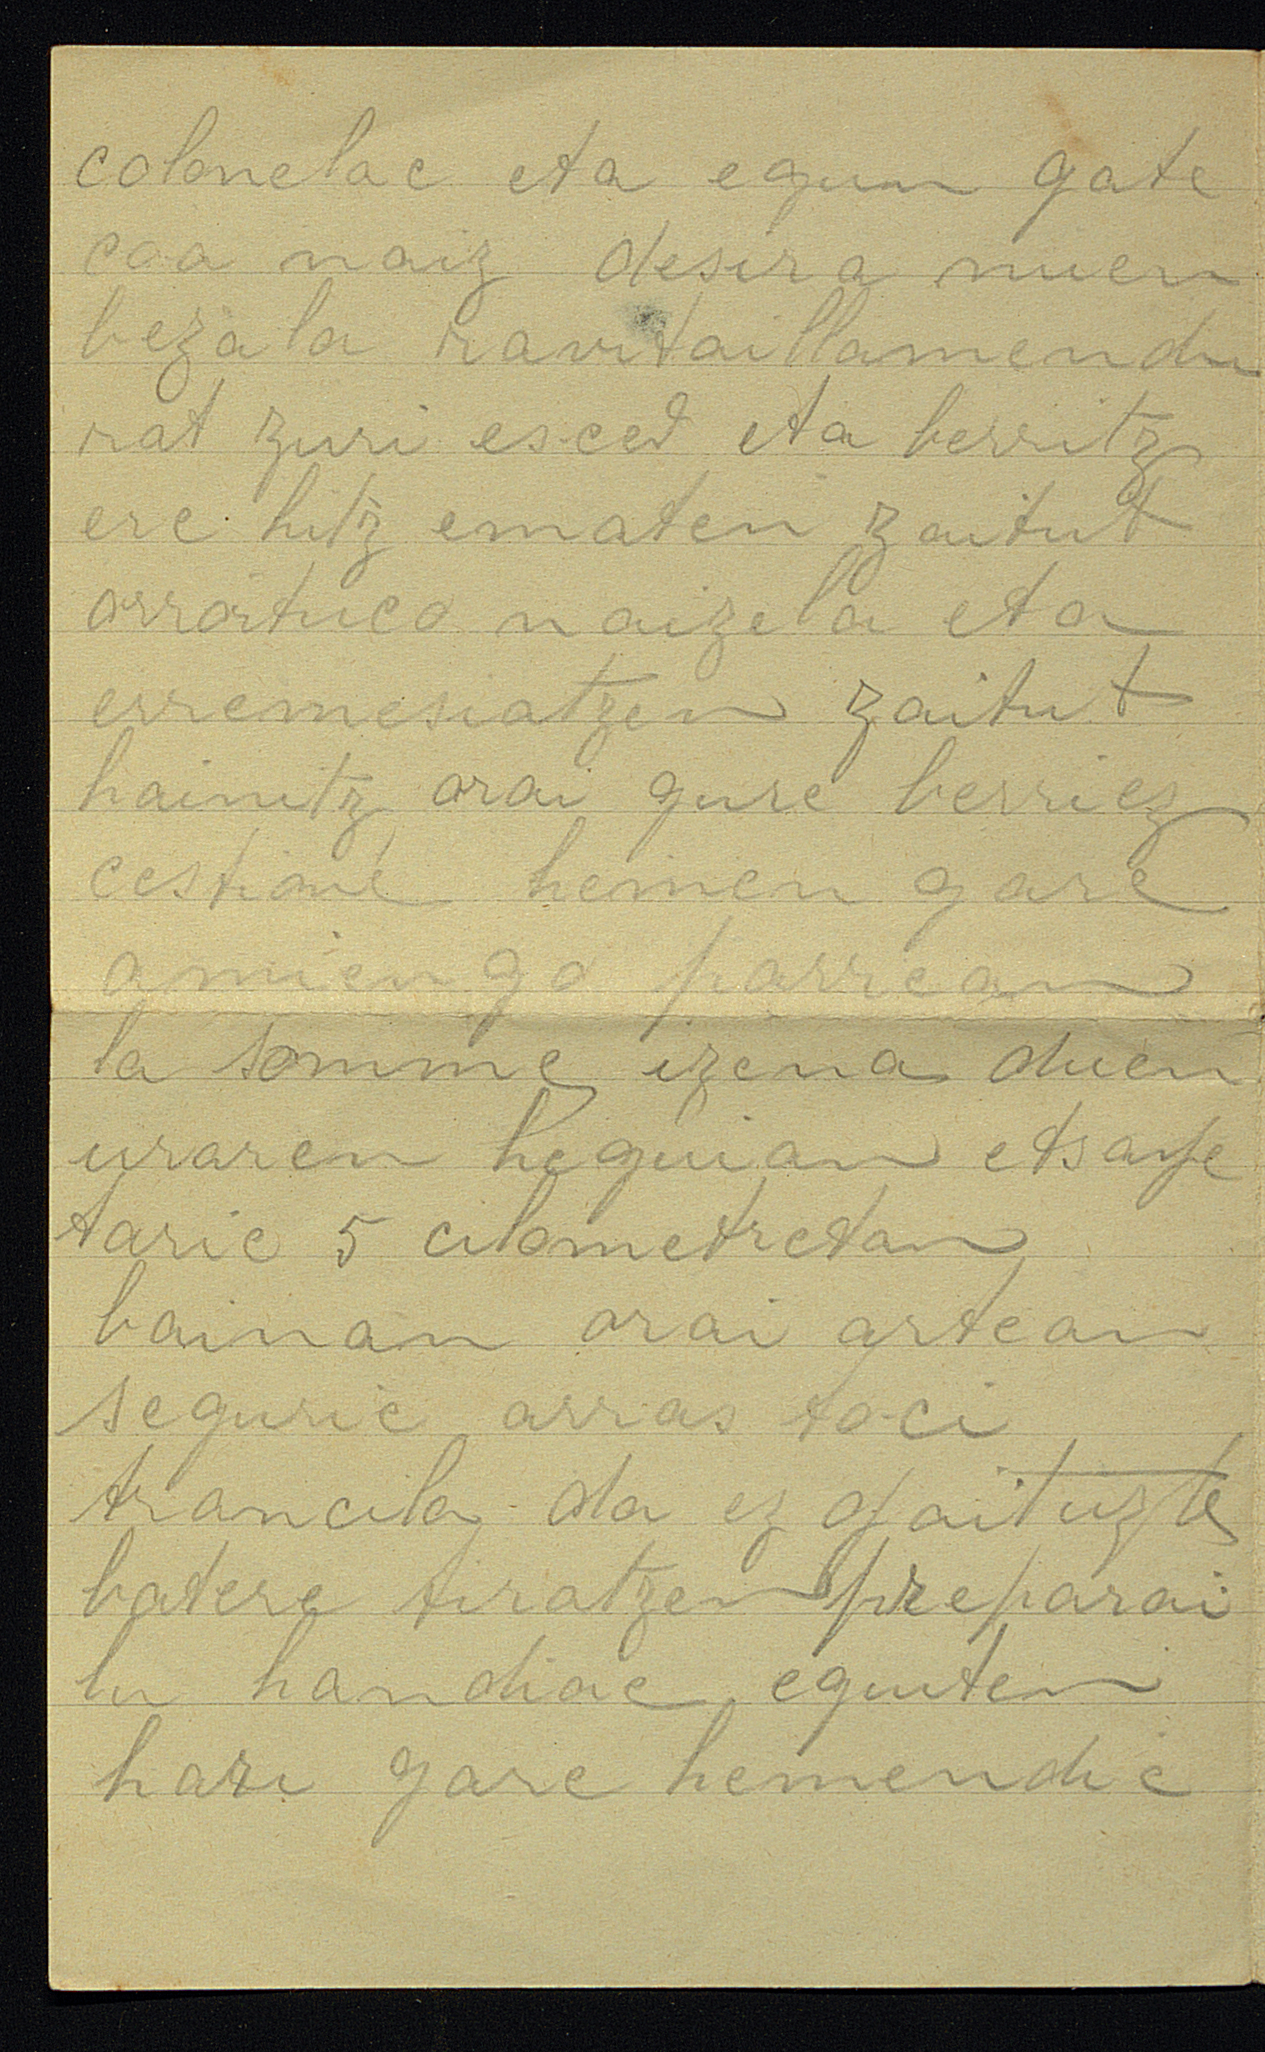 colonelac eta egun gate
coa naiz desira nuen
bezala ravitaillamendu
rat zuri esced eta berritz
ere hitz ematen zaitut
orroituco naizela eta
erremesiatzen zaitut
hainitz orai gure berriez
cestione hemen gare
amiengo parrean
la somme izena duen
uraren heguian etsaye
taric 5 cilometretan
bainan orai artean
seguric arras toci
trancila da ez gaituzte
batere tiratzen preparai
lu handiac eguiten
hari gare hemendic